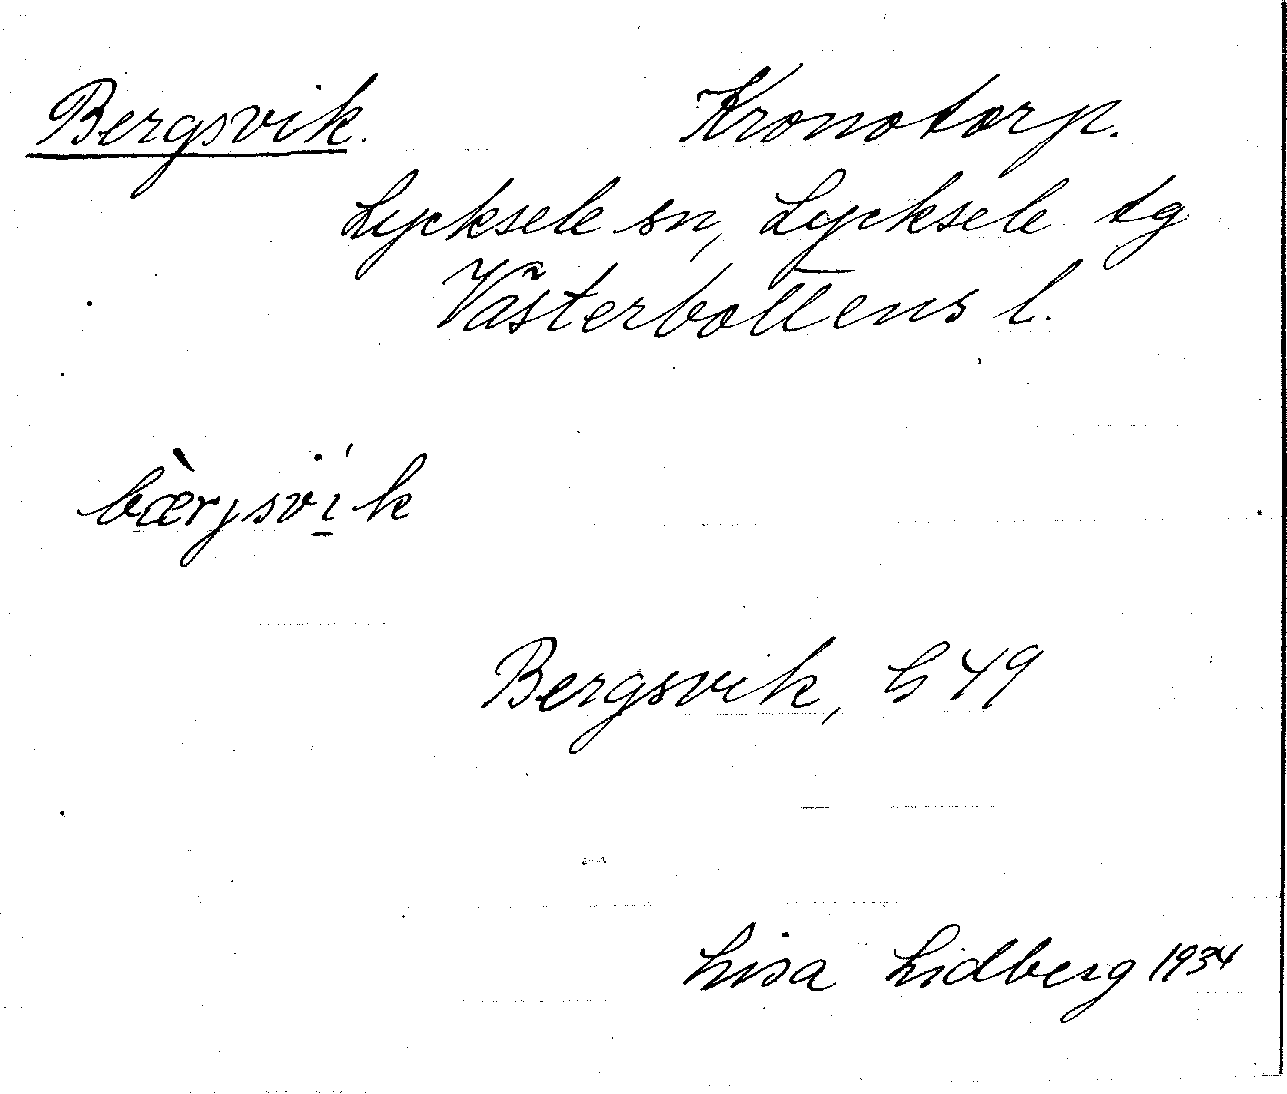 Bergsvik. Kronotorp.
Lycksele sn, Lycksele tg
Västerbottens l.
bæ̀rjsví̱k
Bergsvik, G 49
Lisa Lidberg 1934